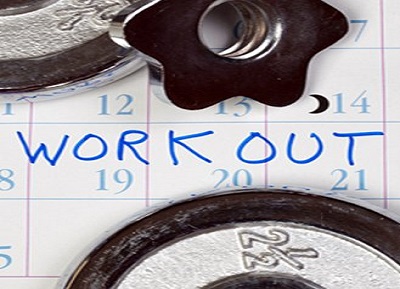 7
12 13 14
WORK OUT
8 19 20 21
2½
5